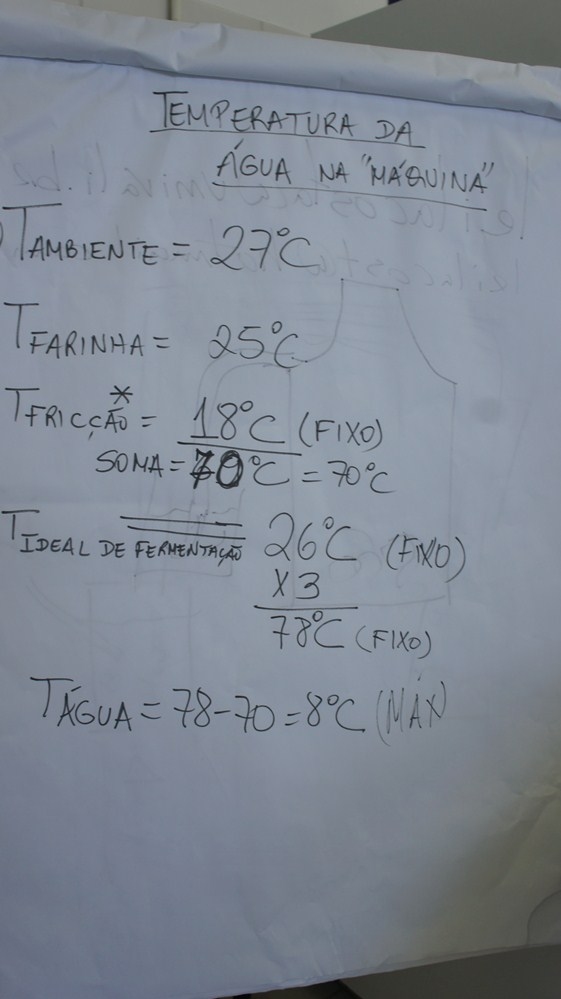 TEMPERATURA DA
ÁGUA NA "MÁQUINA"
TAMBIENTE = 27°C
TFARINHA = 25°C
TFRICÇÃO* = 18°C (FIXO)
SOMA = 70°C = 70°C
TIDEAL DE FERMENTAÇÃO = 26°C (FIXO)
X 3
78°C (FIXO)
TÁGUA = 78-70 = 8°C (MÁX)